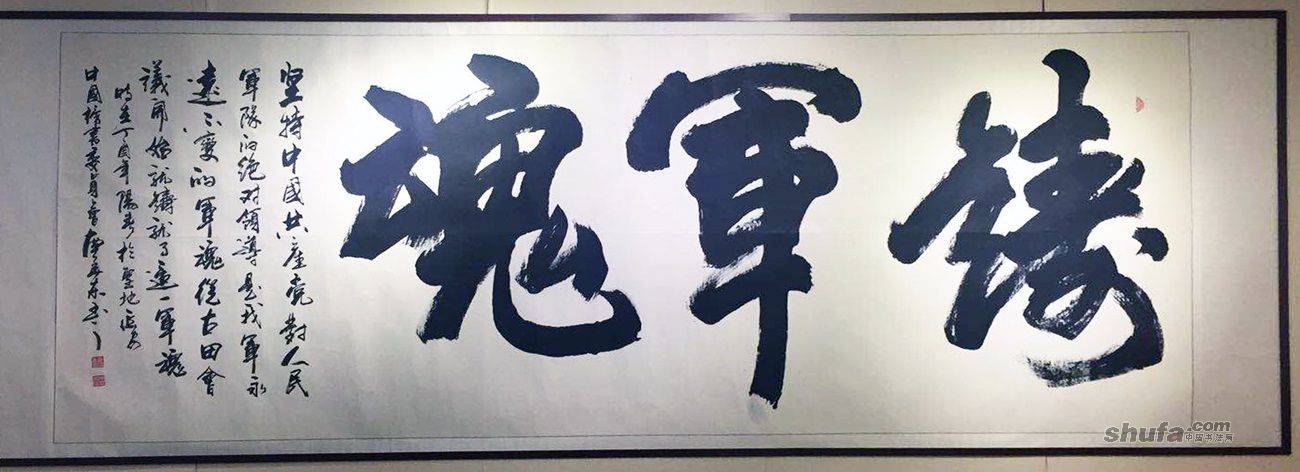 鑄軍魂
坚持中國共產党對人民
軍隊的绝对領導是我軍永
遠不變的軍魂從古田會
議開始就鑄就了這一軍魂
時在丁酉年陽春於聖地延安
中國榜書委員會
shufa.com
中国书法网